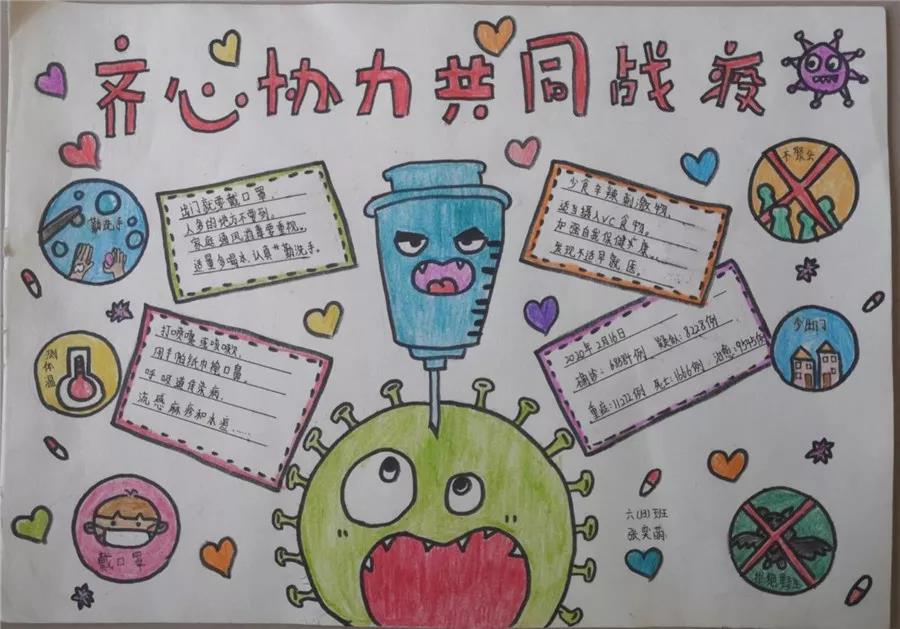 齐心协力共同战疫
不聚会
勤洗手
出门就要戴口罩,
人多的地方不要到。
家庭通风消毒要重视。
适量多喝水,认真勤洗手。
少食辛辣刺激物,
适当摄入VC食物。
加强自我保健康…
发现不适早就医。
测体温
打喷嚏 咳咳嗽,
用手帕纸巾掩口鼻。
呼吸道传染病,
流感麻疹和水痘……
2020年2月16日
确诊:68584例 疑似:8228例
重症:11272例 死亡:1666例 治愈:
少出门
戴口罩
六(8)班
拒绝野味